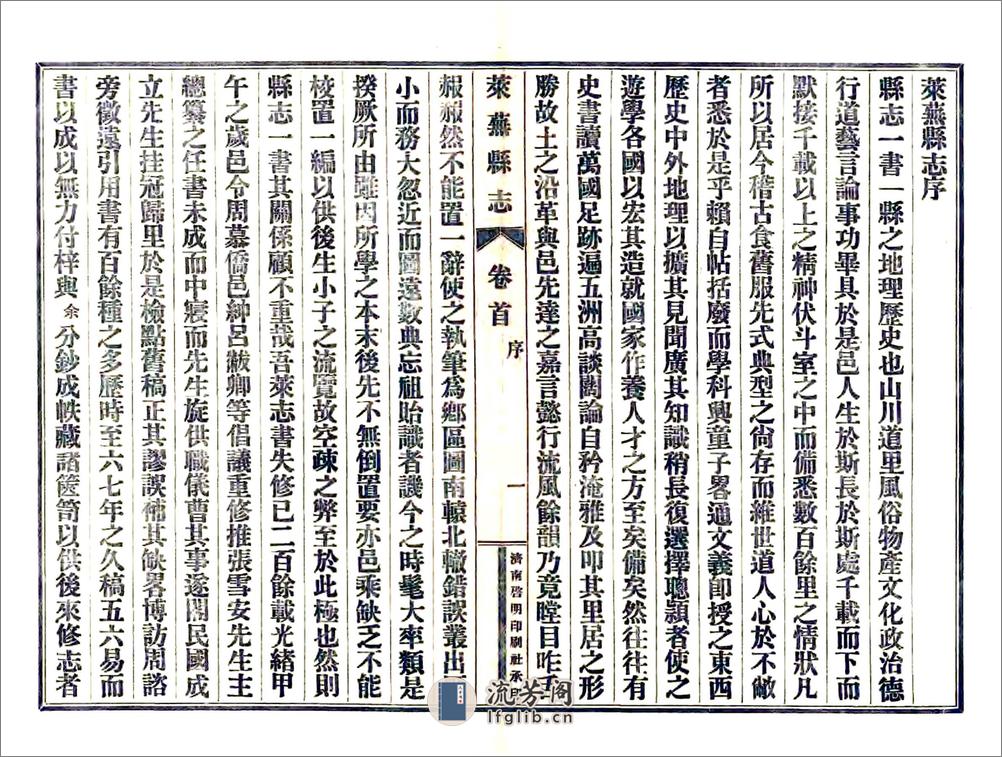 萊蕪縣志序
縣志一書一縣之地理歷史也山川道里風俗物產文化政治德
行道藝言論事功畢具於是邑人生於斯長於斯處千載而下而
默接千載以上之精神伏斗室之中而備悉數百餘里之情狀凡
所以居今稽古食舊服先式典型之尙存而維世道人心於不敝
者悉於是乎賴自帖括廢而學科興童子畧通文義卽授之東西
歷史中外地理以擴其見聞廣其知識稍長復選擇聰頴者使之
遊學各國以宏其造就國家作養人才之方至矣備矣然往往有
史書讀萬國足跡遍五洲高談闊論自矜淹雅及叩其里居之形
勝故土之沿革與邑先達之嘉言懿行流風餘韻乃竟瞠目咋舌
萊蕪縣志 卷首 序 一 濟南啓明印刷社承印
赧赧然不能置一辭使之執筆爲鄉區圖南轅北轍錯誤叢出
小而務大忽近而圖遠數典忘祖貽識者譏今之時髦大率類是
揆厥所由雖因所學之本末後先不無倒置要亦邑乘缺乏不能
校置一編以供後生小子之流覽故空疎之弊至於此極也然則
縣志一書其關係顧不重哉吾萊志書失修已二百餘載光緖甲
午之歲邑令周慕僑邑紳呂黻卿等倡議重修推張雪安先生主
總纂之任書未成而中寢而先生旋供職儀曹其事遂閣民國成
立先生挂冠歸里於是檢點舊稿正其謬誤補其缺畧博訪周諮
旁徵遠引用書有百餘種之多歷時至六七年之久稿五六易而
書以成以無力付梓與余分鈔成帙藏諸篋笥以供後來修志者
流芳阁
lfglib.cn